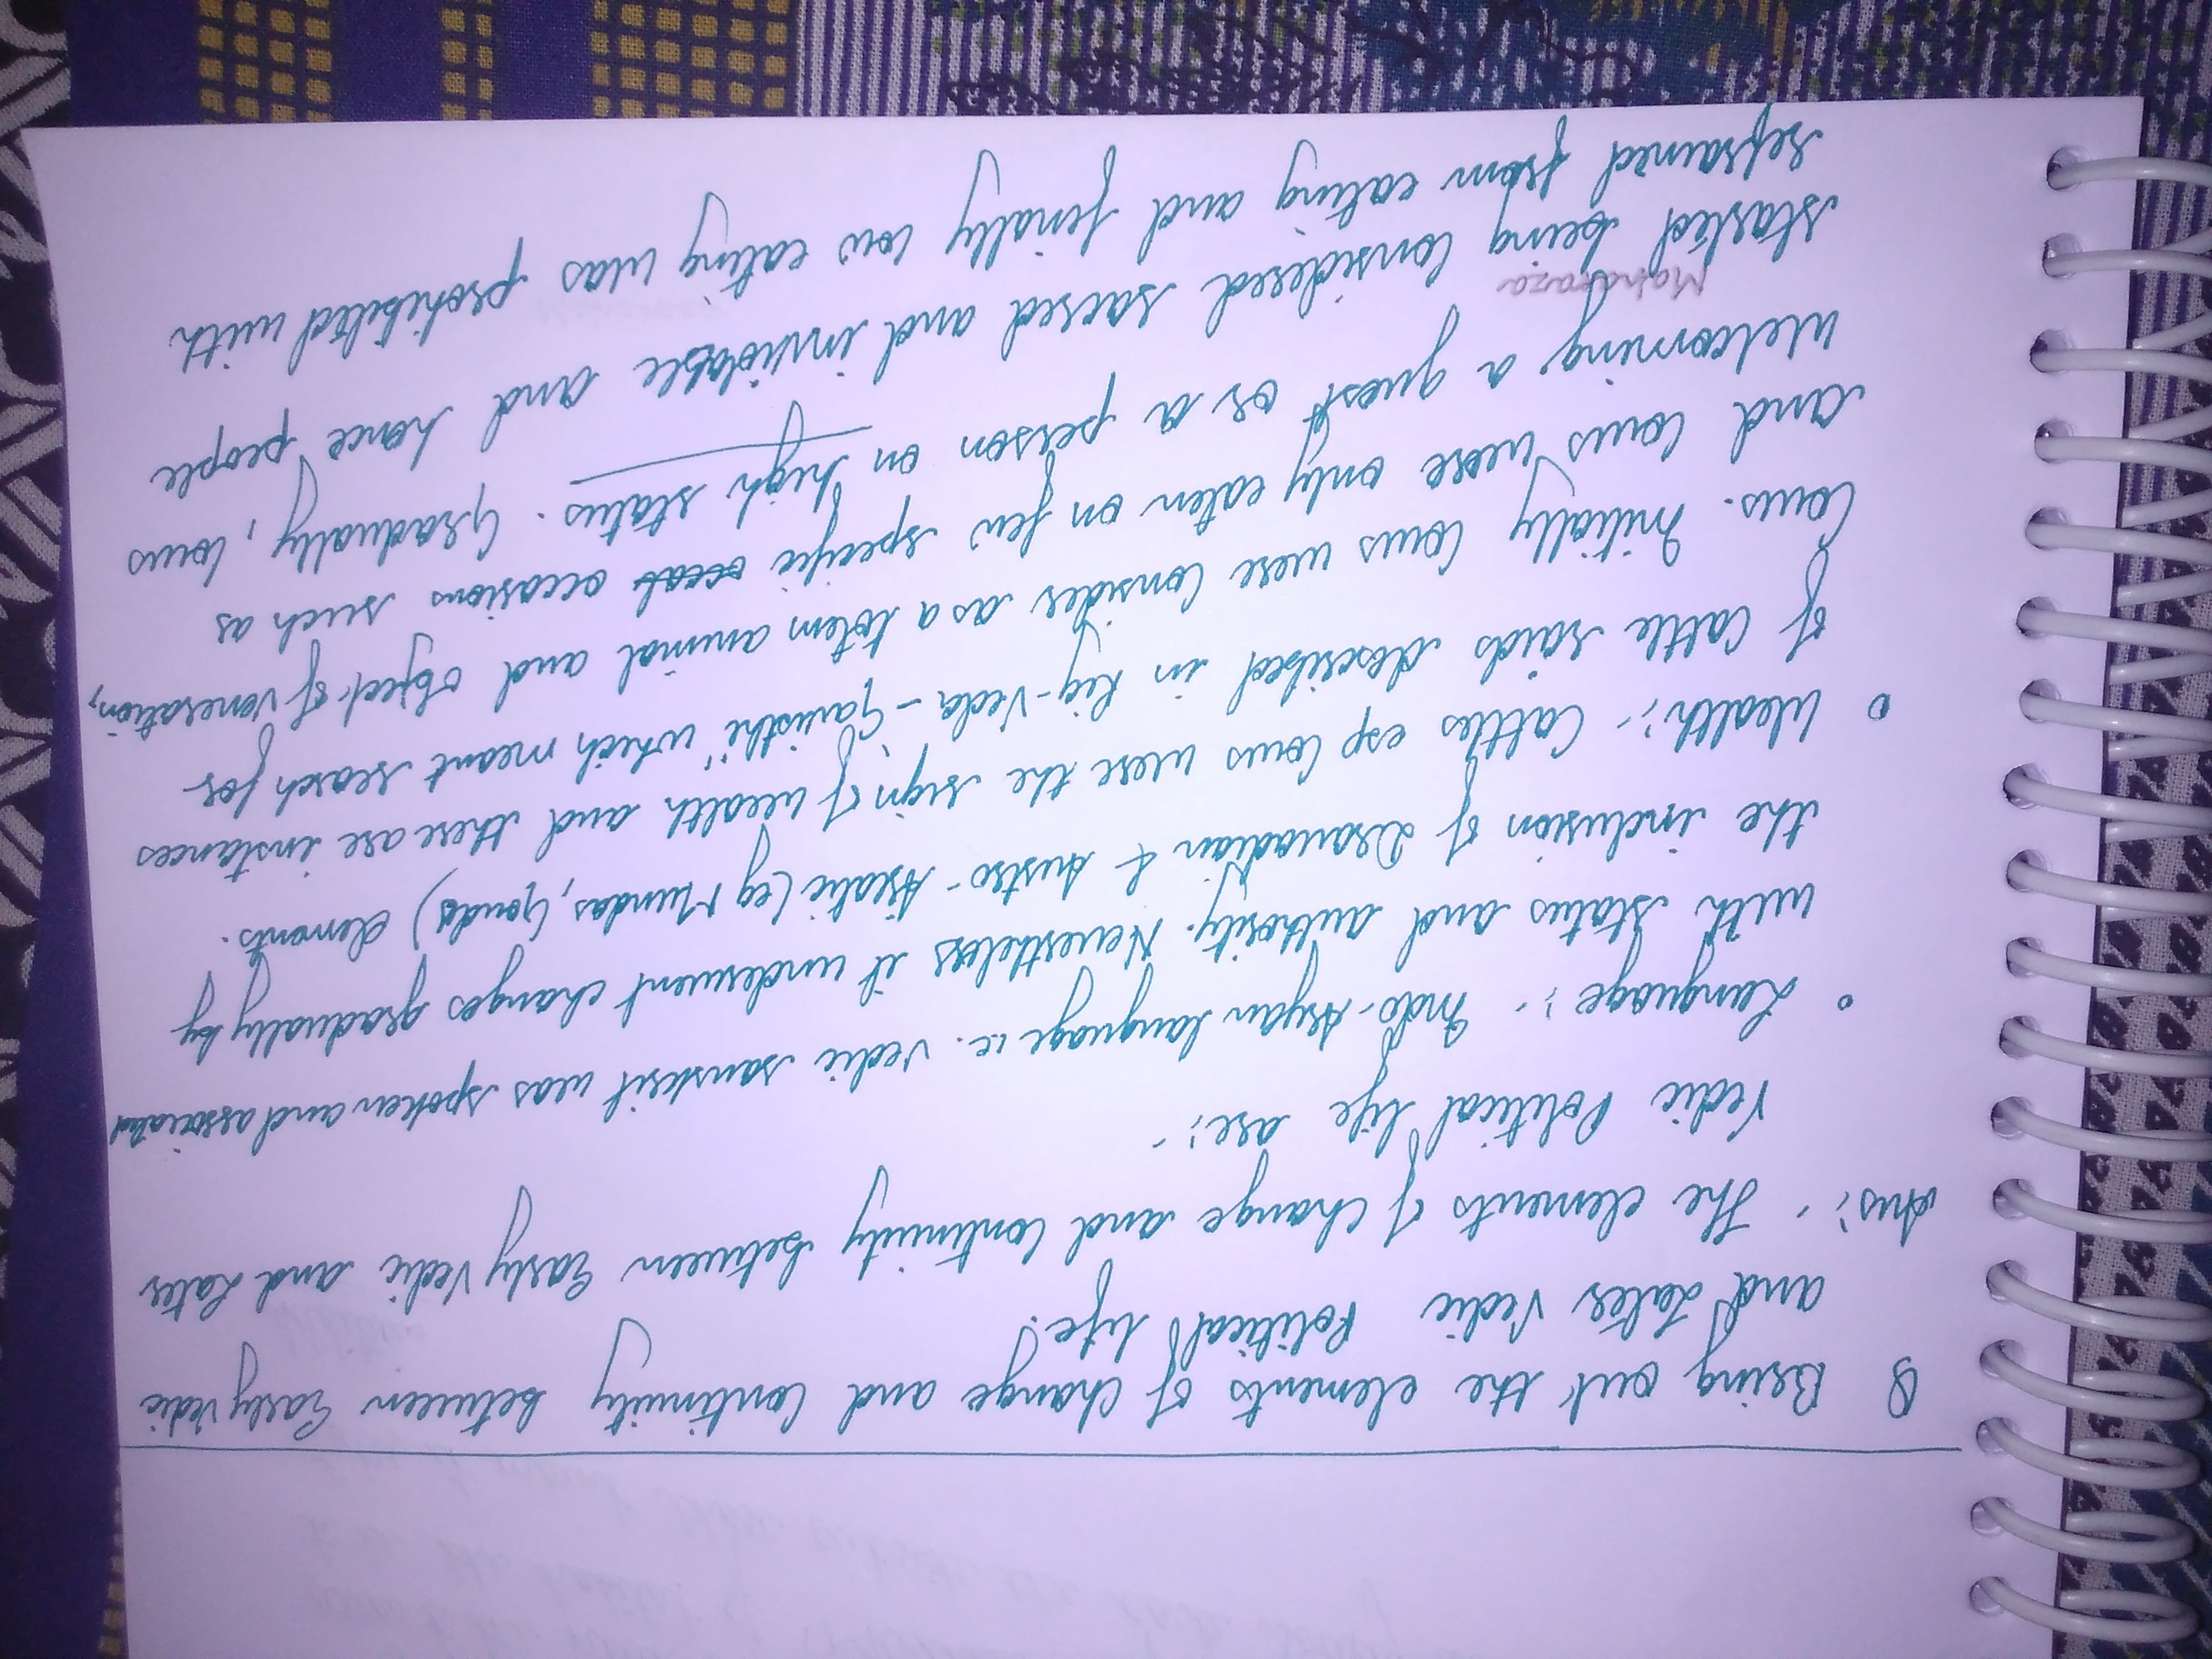 Q Bring out the elements of change and continuity between Early Vedic
and Later Vedic Political life.
Ans:- The elements of change and continuity between Early Vedic and Later
Vedic Political life are:-
o Language:- Indo-Aryan language i.e. Vedic sanskrit was spoken and associated
with status and authority. Nevertheless it underwent changes gradually by
the inclusion of Dravadian & Austro-Asiatic (eg Mundas, Gonds) elements.
o Wealth:- Cattles esp cows were the sign of wealth and there are instances
of cattle raids described in Rig-Veda - "Gavisthi" which meant search for
cows. Initially cows were consider as a totem animal and object of veneration,
and cows were only eaten on few specific occasions such as
welcoming a guest or a person on high status. Gradually, cows
Mahararaza
started being considered sacred and inviolable and hence people
refrained from eating and finally cow eating was prohibited with